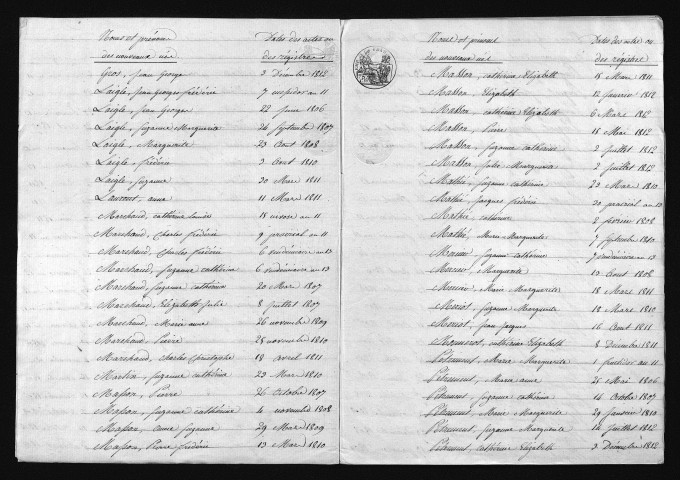 Noms et prénoms Dates des actes ou
des nouveaux nés des régistres
Gros, Jean George 3 Décembre 1812
Laigle, Jean Georges frédéric 7 messidor an 11
Laigle, Jean George 22 Juin 1806
Laigle, Suzanne Marguerite 26 Septembre 1807
Laigle, Marguerite 23 Aout 1808
Laigle, frédéric 3 Aout 1810
Laigle, Suzanne 30 Mars 1811
Laurent, anne 11 Mars 1811
Marchand, catherine Louise 18 nivose an 11
Marchand, Charles frédéric 9 prairial an 11
Marchand, Charles frédéric 6 vendémiaire an 13
Marchand, Suzanne cathérine 6 vendémiaire an 13
Marchand, Suzanne cathérine 20 Mai 1807
Marchand, Elizabeth Julie 8 Juillet 1807
Marchand, Marie anne 26 novembre 1809
Marchand, Pierre 28 novembre 1810
Marchand, Charles Christophe 18 avril 1811
Martin, Suzanne cathérine 23 Mars 1810
Masson, Pierre 26 Octobre 1807
Masson, Suzanne cathérine 4 novembre 1808
Masson, anne Suzanne 29 Mars 1809
Masson, Pierre frédéric 13 Mars 1810
Noms et prénoms Dates des actes ou
des nouveaux nés des régistres
Masson, catherine Elizabeth 18 Mars 1811
Masson, Elizabeth 12 janvier 1812
Masson, cathérine Elizabeth 6 Mars 1812
Masson, Pierre 16 Mai 1812
Masson, Suzanne cathérine 2 Juillet 1812
Masson, Julie Marguerite 2 Juillet 1812
Mathié, Suzanne cathérine 22 Mars 1810
Mathié, Jacques frédéric 20 prairial an 13
Mathié, cathérine 2 février 1808
Mathié, Marie Marguerite 7 Septembre 1810
Suzanne catherine 7 vendémiaire an 13
Marguerite 13 Aout 1808
Marie Marguerite 18 Mars 1811
Suzanne Marguerite 18 Mars 1810
Jean Jacques 16 Aout 1811
cathérine Elizabeth 8 Décembre 1811
Pétrement, Marie Marguerite 1 fructidor an 11
Pétrement, Marie anne 21 Mai 1806
Pétrement, Suzanne cathérine 14 Octobre 1807
Pétrement, Marie Marguerite 29 Janvier 1810
Pétrement, Suzanne Marguerite 14 Juillet 1812
Pétrement, cathérine Elizabeth 3 Décembre 1812